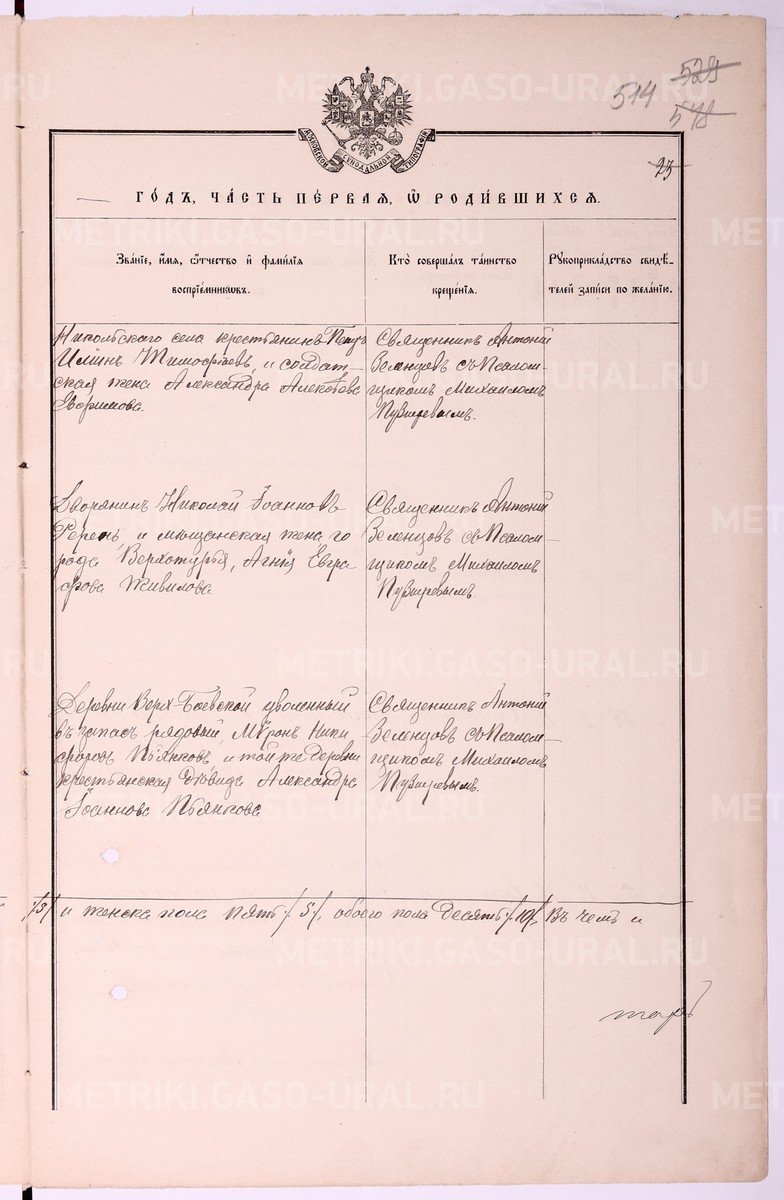 514 529
578
МОСКОВСКОЙ СИНОДАЛЬНОЙ ТИПОГРАФІИ
23
ГО́ДЪ, ЧА́СТЬ ПЕ́РВАЯ, Ѡ РОДИ́ВШИХСЯ.
Зва́нїе, и́мя, ѻ҆́тчество и҆ фами́лїя
воспрїе́мниковъ.
Кто̀ совершалъ та́инство
креще́нїя.
Рꙋкоприкла́дство свидѣ́-
телей за́писи по жела́нїю.
Никольскаго села крестьянинъ Петръ
Илинъ Тимофѣевъ, и солдат-
ская жена Александра Алексѣева
Ефримова.
Священникъ Антоній
Зеленцовъ съ Псалом-
щикомъ Михаиломъ
Пузыревымъ.
Дворянинъ Николай Іоанновъ
и мѣщанская жена го
рода Верхотурья, Агнія Евгра
фова Живилова
Священникъ Антоній
Зеленцовъ съ Псалом-
щикомъ Михаиломъ
Пузыревымъ
Деревни Верх-Боевской уволенный
въ запасъ рядовый, Мѵронъ Ники
форовъ Пьянковъ, и той же деревни
крестьянская дѣвица Александра
Іоаннова Пьянкова
Священникъ Антоній
Зеленцовъ съ Псалом-
щикомъ Михаиломъ
Пузыревымъ.
/5/ и женска пола пять /5/, обоего пола десять /10/, Въ чемъ и
METRIKI.GASO-URAL.RU